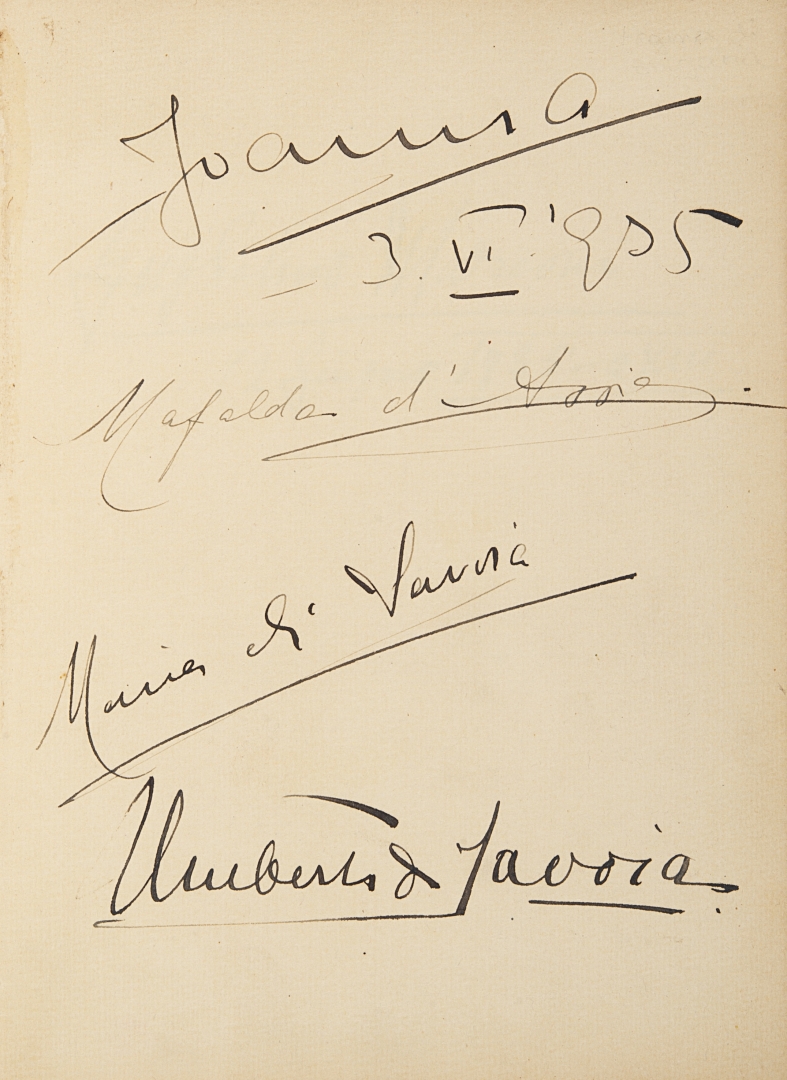 Joanna
- 3. VI. '935
Mafalda d'Assia.
Maria di Savoia
Umberto di Savoia.